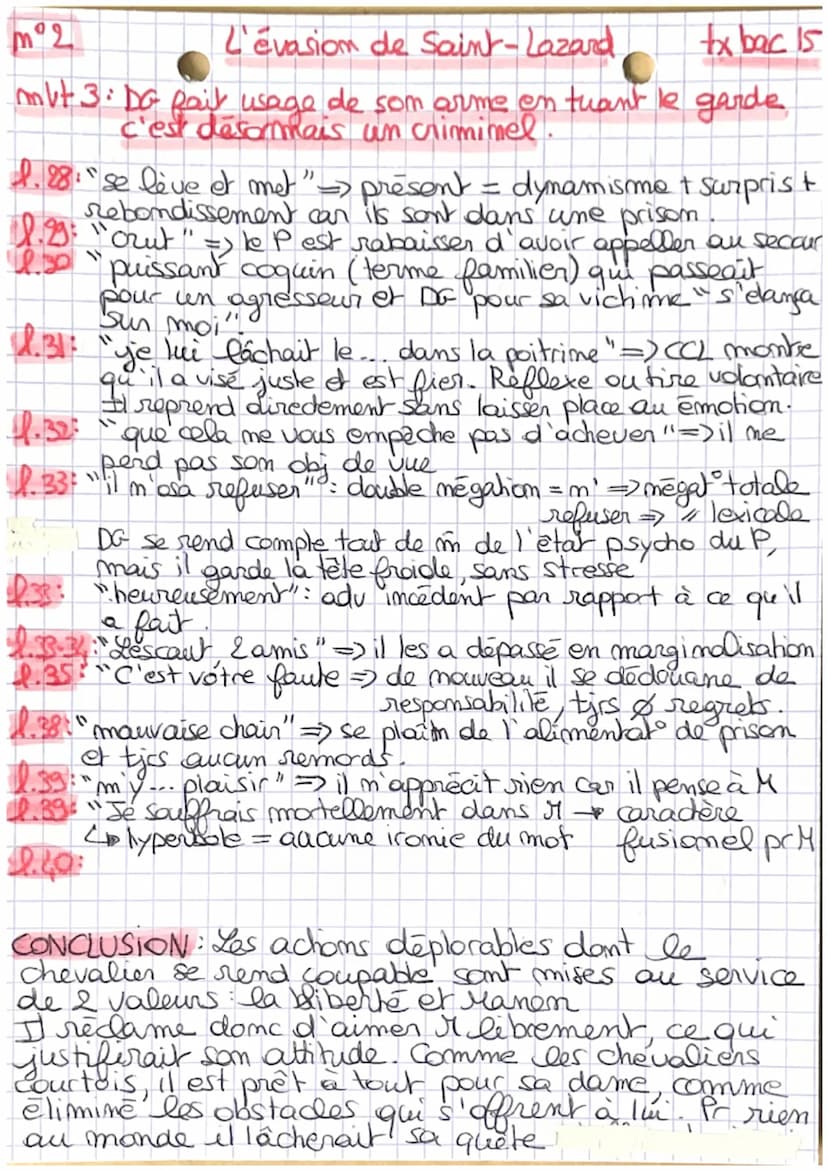 n°2 L'évasion de Saint-Lazard tx bac 15
mvt 3 : DG fait usage de son arme en tuant le garde,
c'est désormais un criminel.
l.28 : "se lève et met" => présent = dynamisme + surpris +
rebondissement car ils sont dans une prison.
l.29 : "crut" => le P est rabaisser d'avoir appeller au secour
l.30 "puissant coquin (terme familier) qui passeait
pour un agresseur et DG pour sa vichime "s'élança
sur moi".
l.31 : "je lui lâchait le... dans la poitrine" => CCL montre
qu'il a visé juste et est fier. Réflexe ou tire volontaire
Il reprend directement sans laisser place au émotion.
l.32 : "que cela ne vous empêche pas d'achever" => il ne
perd pas son obj de vue
l.33 : "il n'osa refuser" : double négation = n' => négat° totale
refuser => // lexicale
DG se rend compte tout de m̂ de l'état psycho du P,
mais il garde la tête froide, sans stresse
l.33 : "heureusement" : adv incédent par rapport à ce qu'il
a fait.
l.33-34 : "Lescaut, 2 amis" => il les a dépassé en marginalisation
l.35 : "C'est vôtre faute => de nouveau il se dédouane de
responsabilité, tjrs ∅ regrets.
l.38 : "mauvaise chair" => se plaîtn de l'alimentat° de prison
et tjrs aucun remords.
l.39 : "m'y... plaisir" => il n'apprécit rien car il pense à M
l.39 : "Je souffrais mortellement dans M → caractère
↳ hyperbole = aucune ironie du mot fusionel pr M
l.40 :
CONCLUSION : Les actions déplorables dont le
chevalier se rend coupable sont mises au service
de 2 valeurs : la liberté et Manon
Il réclame donc d'aimer M librement, ce qui
justifirait son attitude. Comme les chevaliers
courtois, il est prêt à tout pour sa dame, comme
éliminé les obstacles qui s'offrent à lui. Pr rien
au monde il lâcherait sa quête